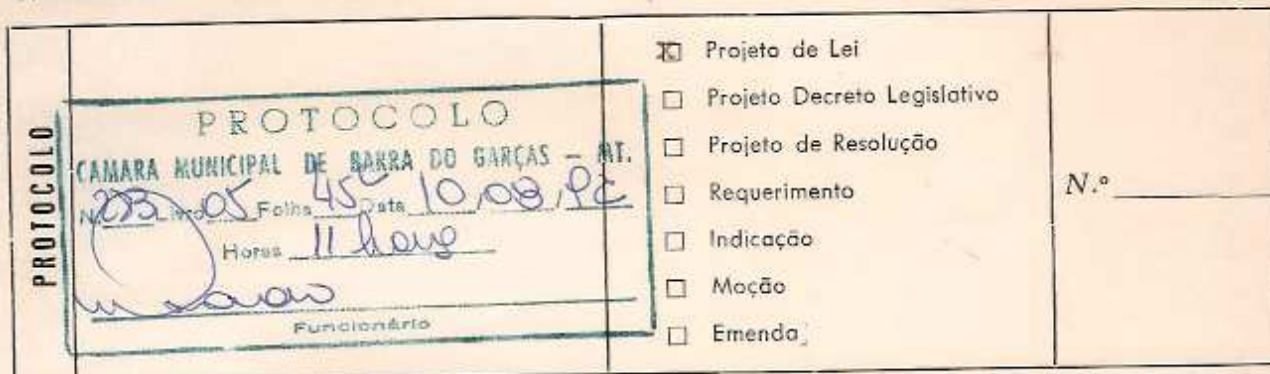 PROTOCOLO
PROTOCOLO
CAMARA MUNICIPAL DE BARRA DO GARÇAS — MT.
N.º 203 Livro 05 Folha 45 Data 10,08,92
Horas 11 horas
Funcionário
Projeto de Lei
Projeto Decreto Legislativo
Projeto de Resolução
Requerimento
Indicação
Moção
Emenda
N.º